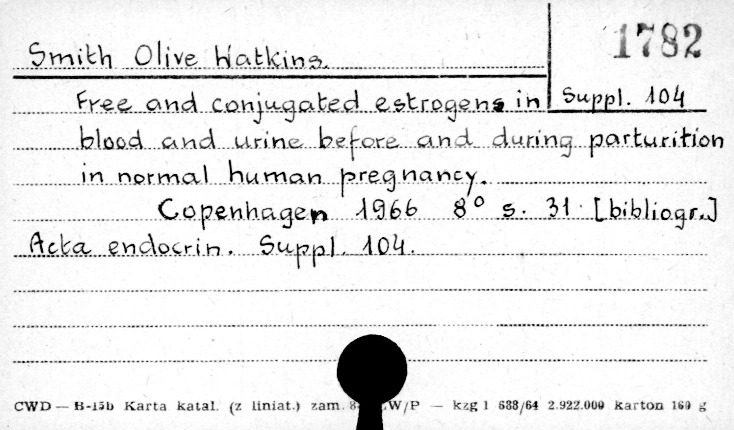 Smith Olive Watkins.
1782
Suppl. 104
Free and conjugated estrogens in
blood and urine before and during parturition
in normal human pregnancy.
Copenhagen 1966 8° s. 31 [bibliogr.]
Acta endocrin. Suppl. 104.
CWD — B-15b Karta katal. (z liniat.) zam. W/P — kzg 1 688/64 2.922.000 karton 160 g